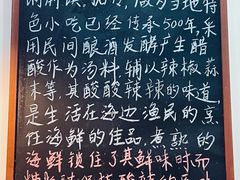 色小吃已经传承500年,采
用民间酿酒发酵产生醋
酸作为汤料,辅以辣椒蒜
末等,其酸酸辣辣的味道,
是生活在海边渔民的烹
任海鲜的佳品,煮熟的
海鲜锁住了其鲜味时而